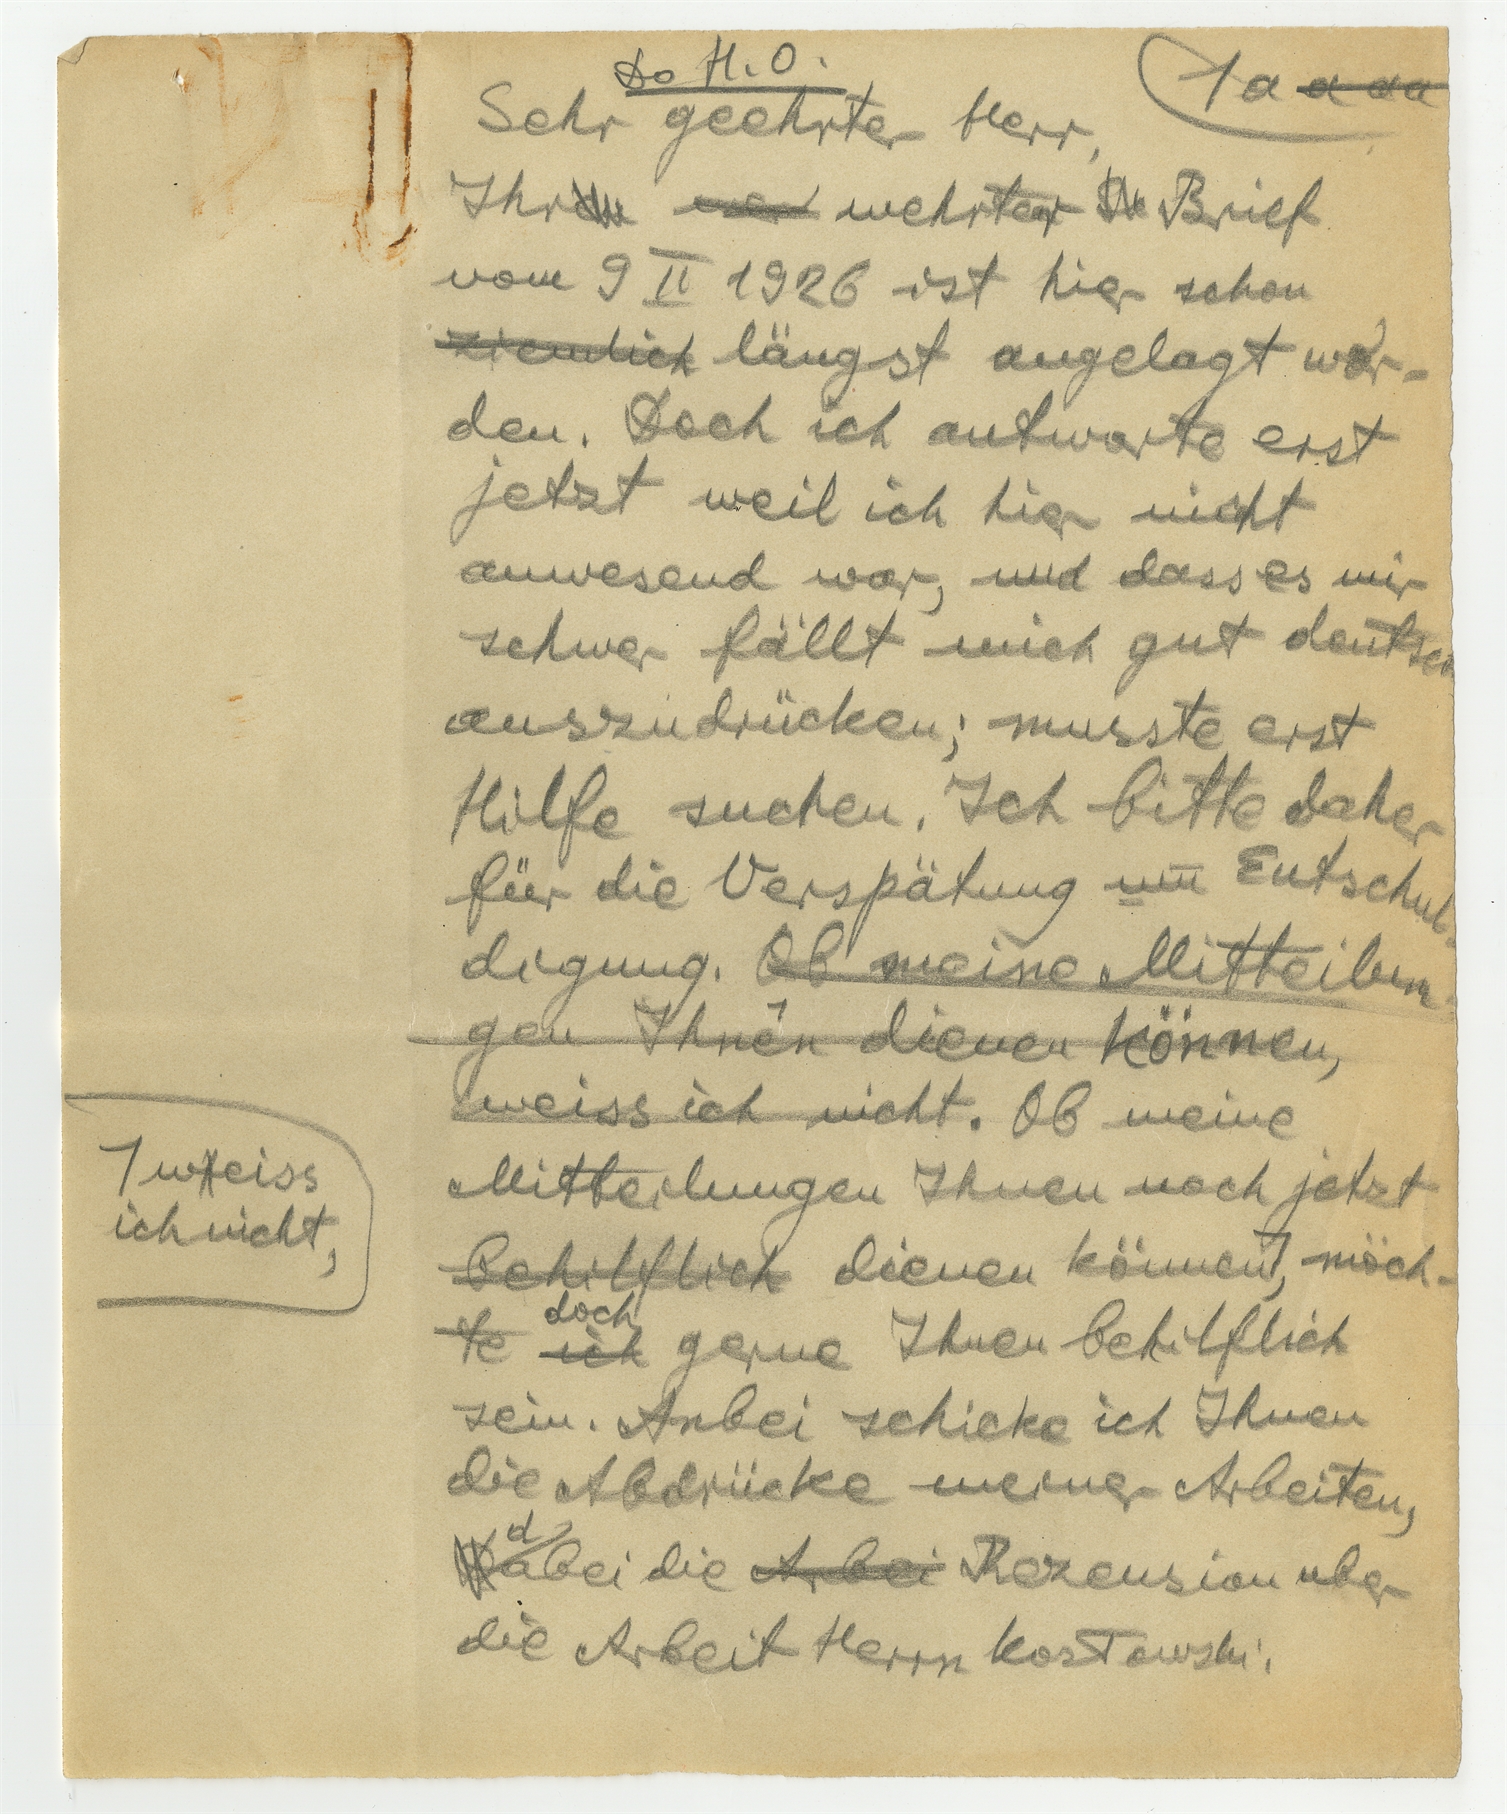 Do H.O.
1a a aa
Sehr geehrter Herr,
Ihr wehrter Brief
vom 9 II 1926 ist hier schon
ziemlich längst angelagt wor-
den. Doch ich antworte erst
jetzt weil ich hier nicht
anwesend war, und dass es mir
schwer fällt mich gut deutsch
auszudrücken; musste erst
Hilfe suchen. Ich bitte daher
für die Verspätung um Entschul-
digung. Ob meine Mitteilun-
gen Ihnen dienen können,
weiss ich nicht. Ob meine
Mitteilungen Ihnen noch jetzt
behilflich dienen können, möch-
te ich doch gerne Ihnen behilflich
sein. Anbei schicke ich Ihnen
die Abdrücke meiner Arbeiten,
dabei die Arbei Rezension uber
die Arbeit Herrn Kostowski.
1 weiss
ich nicht,